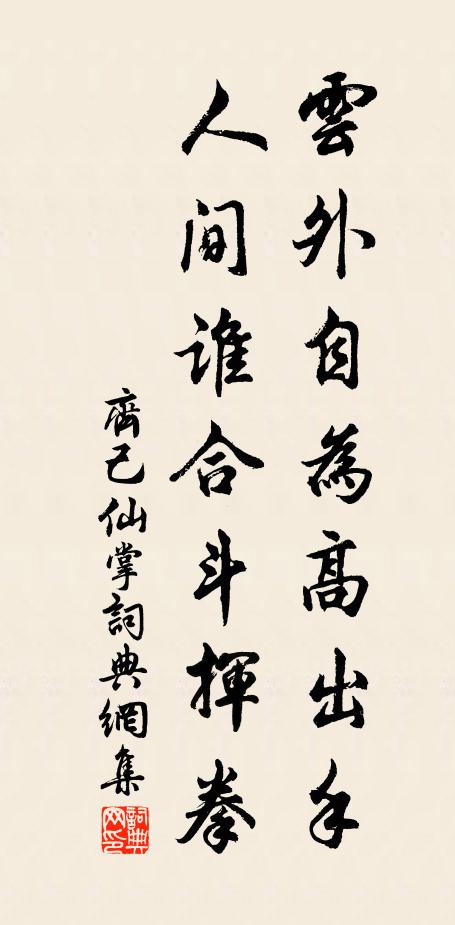 雲外自為高出手
人间誰合斗揮拳
齊己仙掌詞典網集
詞典網印